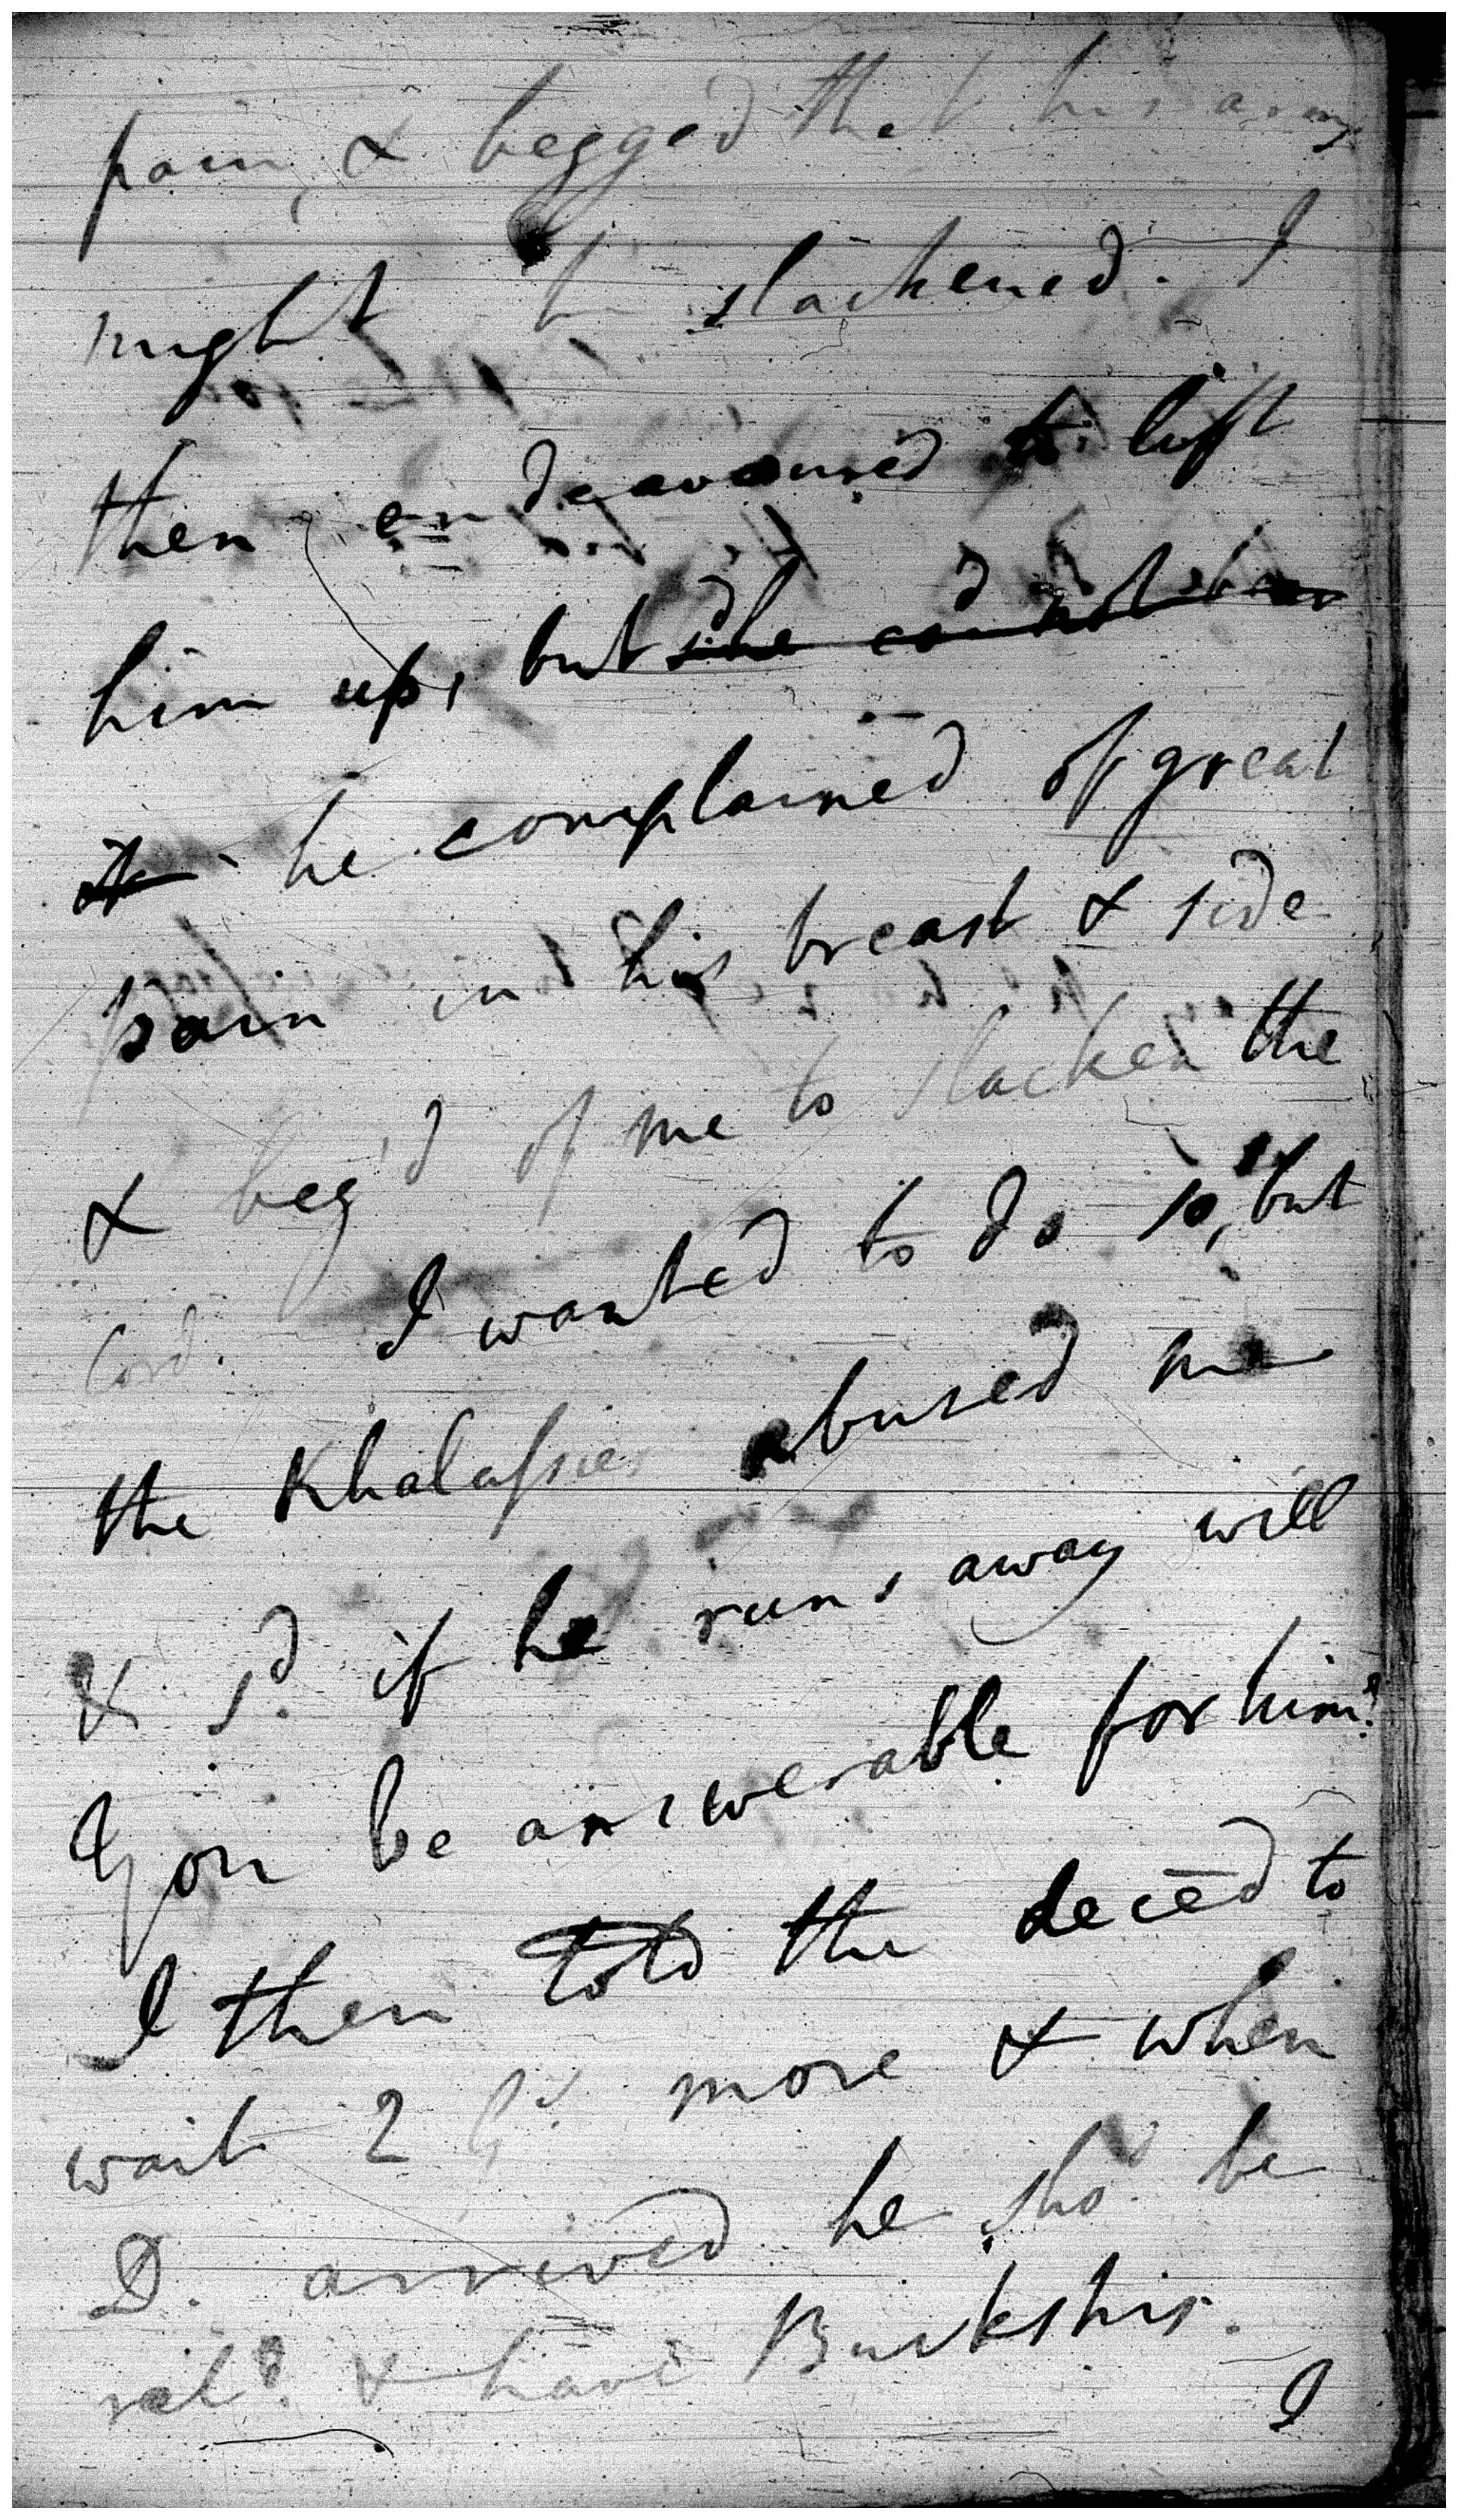 pain, & begged that his arms
might be slackened. I
then endeavoured to lift
him up, but he co^d not bear
it - he complained of great
pain in his breast & side
& beg'd of me to slacken the
Cord. I wanted to do so, but
the Khalassies abused me
& s^d. if he runs away will
You be answerable for him?
I then told the deced to
wait 2 G^s. more & when
D. arrived he sho^d be
rel^d. & have Buckshis.
I